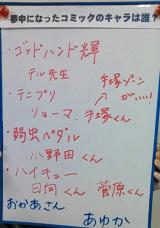 夢中になったコミックのキャラは誰?
・ゴッドハンド輝
テル先生
手塚ゾーンがいい!
・テニプリ
リョーマ、手塚くん
・弱虫ペダル
小野田くん
・ハイキュー
日向くん 菅原くん
おかあさん
あゆか